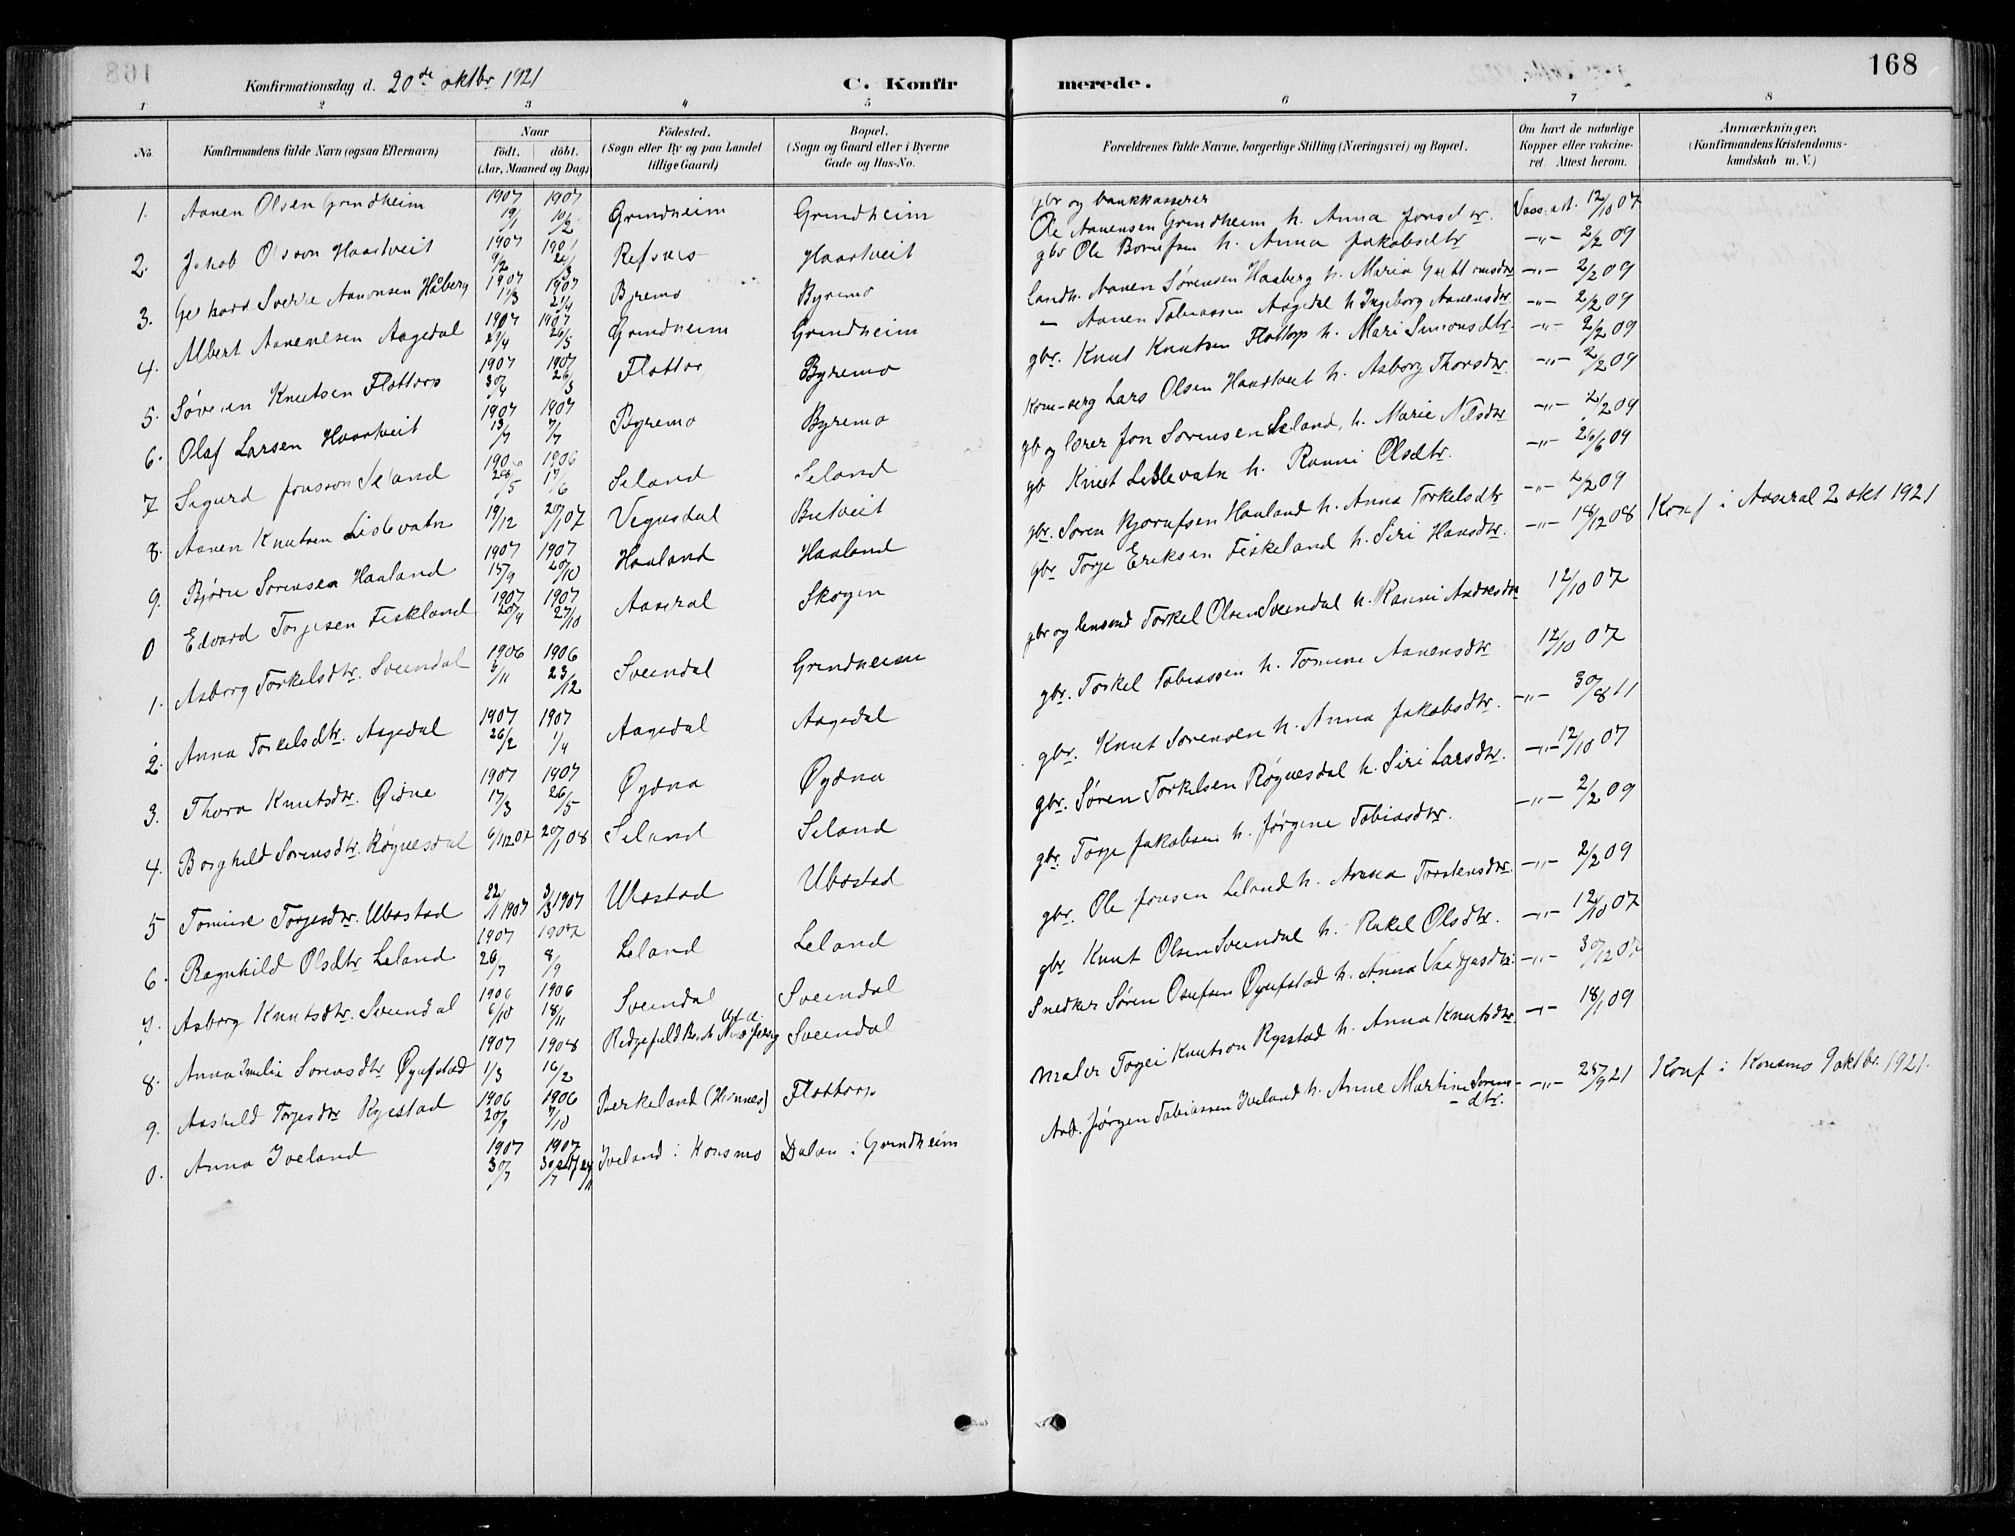 168
Konfirmationsdag d. 20de oktbr 1921
C. Konfirmerede.
1 2 3 4 5 6 7 8
No.
Konfirmandens fulde Navn (ogsaa Efternavn)
Naar
födt. döbt.
(Aar, Maaned og Dag)
Födested.
(Sogn eller By og paa Landet
tillige Gaard)
Bopæl.
(Sogn og Gaard eller i Byerne
Gade og Hus-No.
Forældrenes fulde Navne, borgerlige Stilling (Næringsvei) og Bopæl.
Om havt de naturlige
Kopper eller vaccine-
ret. Attest herom.
Anmærkninger.
(Konfirmandens Kristendoms-
kundskab m. V.)
1. Aanen Olsen Grindheim 1907 19/1 1907 10/2 Grindheim Grindheim gbr og bankkasserer Ole Aanensen Grindheim h. Anna Jonsdtr. Vacc. att. 12/10 07
2. Jakob Olsson Haartveit 1907 9/2 Refsnes Haartveit gbr Ole Bornfsen h. Anna Jakobsdtr -"- 2/2 09
3. Gerhard Sverre Aanonsen Håberg 1907 11/3 1907 21/4 Byremo Byremo Landh. Aanen Sørensen Haaberg h. Maria Guttormsdtr -"- 2/2 09
4. Albert Aanensen Aagedal 1907 21/4 1907 26/5 Grindheim Grindheim - Aanen Tobiassen Aagedal h Ingeborg Aanensdtr -"- 2/2 09
5. Sørenen Knutsen Flottorp 1907 30/4 1907 26/5 Flottor Byremo gbr. Knut Knutsen Flottorp h. Mari Simonsdtr. -"- 2/2 09
6. Olaf Larsen Haartveit 1907 13/7 1907 7/7 Byremo Byremo Lars Olsen Haartveit h. Asborg Thorsdtr. -"- 2/2 09
7 Sigurd Jonsson Seland 1906 28/5 1906 17/6 Seland Seland gbr og lærer Jon Sørensen Seland, h. Marie Nilsdtr -"- 2/2 09
8. Aanen Knutsen Lislevatn 19/12 20/1 07 Vegusdal Butveit gb Knut Lislevatn h. Ranni Olsdtr. -"- 26/6 09
9. Bjørn Sørensen Haaland 1907 15/9 1907 20/10 Haaland Haaland gbr. Søren Bjornfsen Haaland h. Anna Torkelsdtr -"- 2/2 09
0 Edvard Torjesen Fiskland 1907 20/9 1907 27/10 Aaseral Skogen gbr Torje Eriksen Fiskeland h. Siri Hansdtr. -"- 18/12 08 Konf i Aaseral 2 okt 1921
1. Asborg Torkelsdtr. Sveindal 1906 3/11 1906 23/12 Sveindal Grindheim gbr og lensmd Torkel Olsen Sveindal h. Ranni Andresdtr 12/10 07
2. Anna Torkelsdtr. Aagedal 1907 26/2 1907 1/4 Aagedal Aagedal gbr. Torkel Tobiassen h. Tomine Aanensdtr 12/10 07
3. Thora Knutsdtr. Øidne 1907 17/3 1907 26/5 Øydna Øydna gbr. Knut Sørensen h. Anna Jakobsdtr. -"- 30/8 11
4. Borghild Sorensdtr. Røynesdal 6/12 07 20/1 08 Seland Seland gbr. Søren Torkelsen Røynesdal h. Siri Larsdtr. -"- 12/10 07
5 Tomine Torjesdtr. Ubostad 22/1 1907 3/3 1907 Ubostad Ubostad gbr. Torje Jakobsen h. Jørgine Tobiasdtr. -"- 2/2 09
6. Ragnhild Olsdtr Leland 1907 26/7 1907 8/9 Leland Leland gbr. Ole Jonsen Leland h. Anna Torstensdtr. -"- 2/2 09
7. Asborg Knutsdtr. Sveindal 1906 6/10 1906 18/11 Sveindal Sveindal gbr Knut Olsen Sveindal h. Rakel Olsdtr. -"- 12/10 07
8. Anna Emelie Sorensdtr Øynfstad 1907 1/3 1908 16/2 Sveindal Snedker Søren Osufsen Øynfstad h. Anna -"- 30/12 07
9. Aashild Torjesdtr Rysstad 1906 20/9 1906 7/10 Berkeland (Hinnes) Flottorp Maler Torjei Knutson Rysstad h. Anna Knutsdtr. -"- 18/1 09
0. Anna Iveland 1907 30/7 1907 Iveland i Konsmo Dalan i Grindheim Arb. Jørgen Tobiassen Iveland h. Anne Martine Sorens-dtr. -"- 25/9 21 Konf i Konsmo 9 oktbr. 1921.